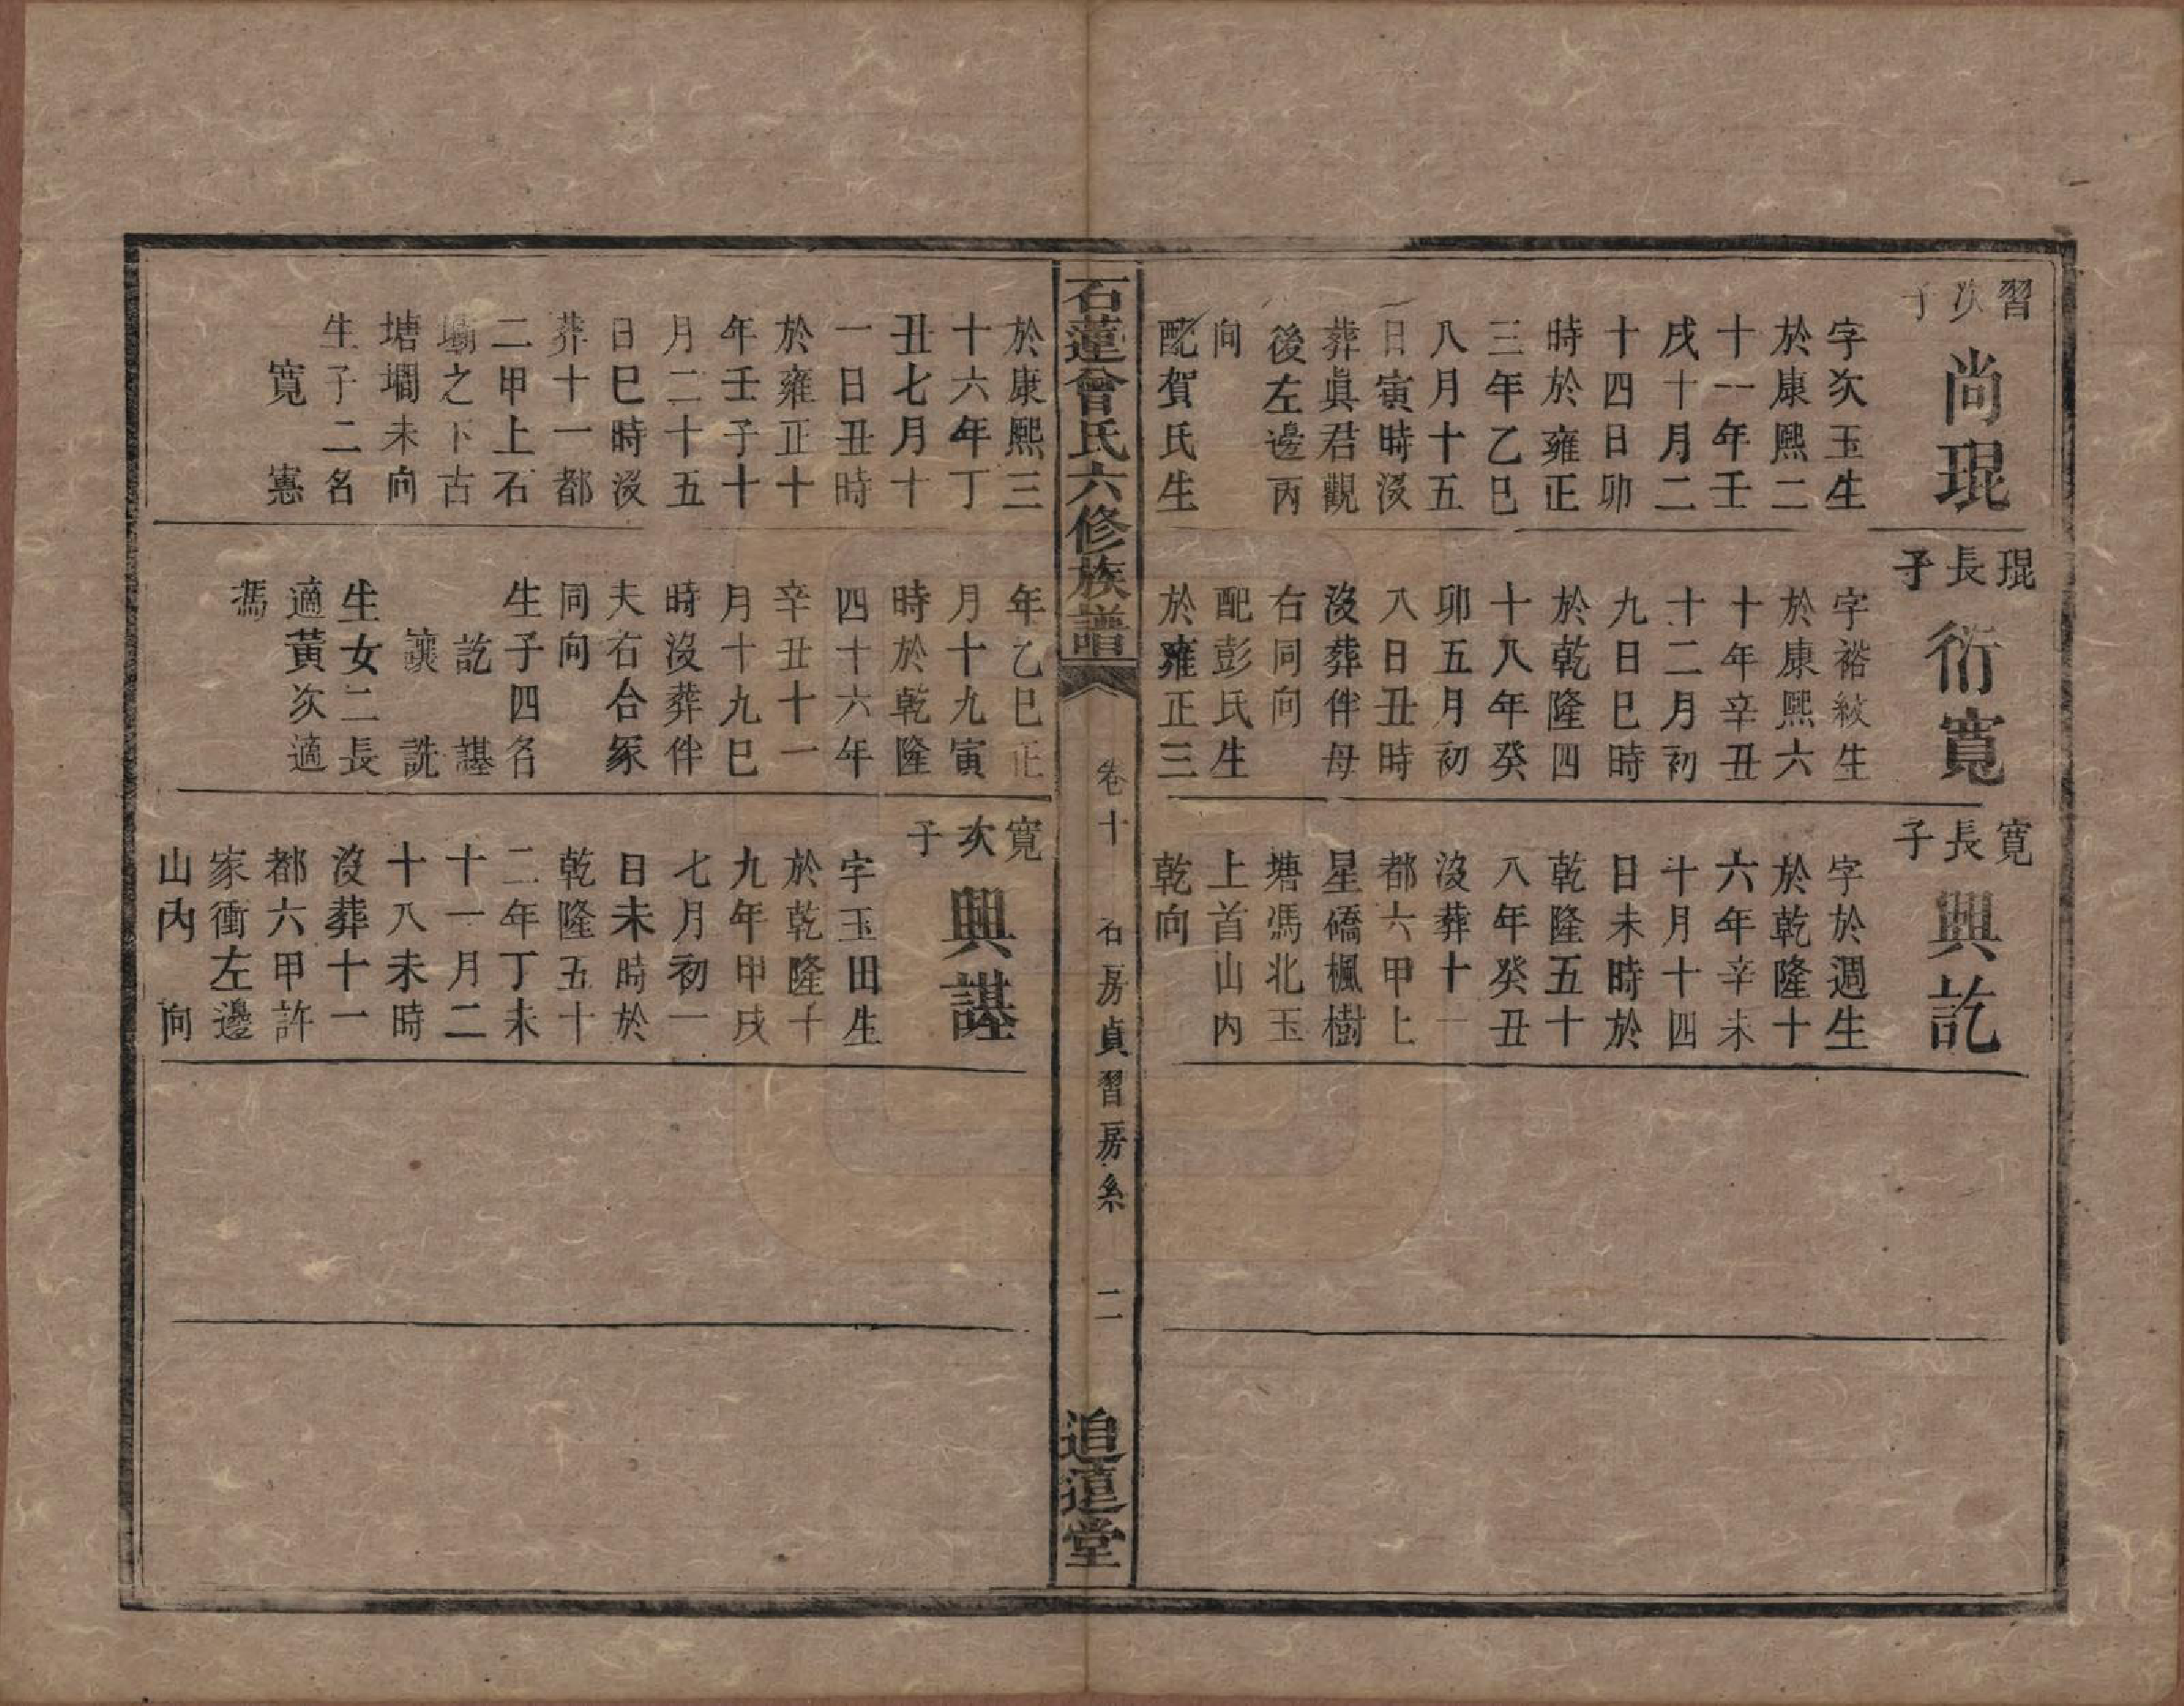 習次子
尚琨
字次玉生
於康熙二
十一年壬
戌十月二
十四日卯
時於雍正
三年乙巳
八月十五
日寅時沒
葬眞君觀
後左邊丙
向
配賀氏生
琨長子
衍寬
字裕紋生
於康熙六
十年辛丑
十二月初
九日巳時
於乾隆四
十八年癸
卯五月初
八日丑時
沒葬伴母
右同向
配彭氏生
於雍正三
寬長子
興訖
字於週生
於乾隆十
六年辛未
十月十四
日未時於
乾隆五十
八年癸丑
沒葬十一
都六甲上
星礄楓樹
塘馮北玉
上首山内
乾向
石蓮曾氏六修族譜
卷十
石房貞習房系
二
追遠堂
於康熙三
十六年丁
丑七月十
一日丑時
於雍正十
年壬子十
月二十五
日巳時沒
葬十一都
二甲上石
塌之下古
塘墹未向
生子二名
寬 憲
年乙巳正
月十九寅
時於乾隆
四十六年
辛丑十一
月十九巳
時沒葬伴
夫右合冢
同向
生子四名
訖 諶
讓 詵
生女二長
適黃次適
馮
寬次子
興諶
字玉田生
於乾隆十
九年甲戌
七月初一
日未時於
乾隆五十
二年丁未
十一月二
十八未時
沒葬十一
都六甲許
家衝左邊
山内 向